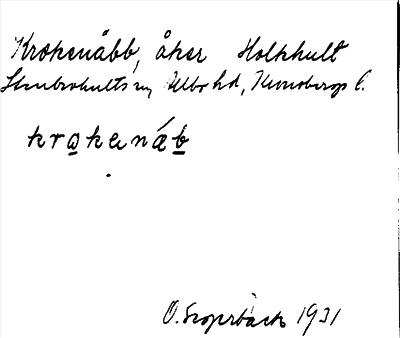 Krokenäbb, åker Holkhult
Stenbrohults sn, Allbo hd, Kronobergs l.
krokenäb
1931